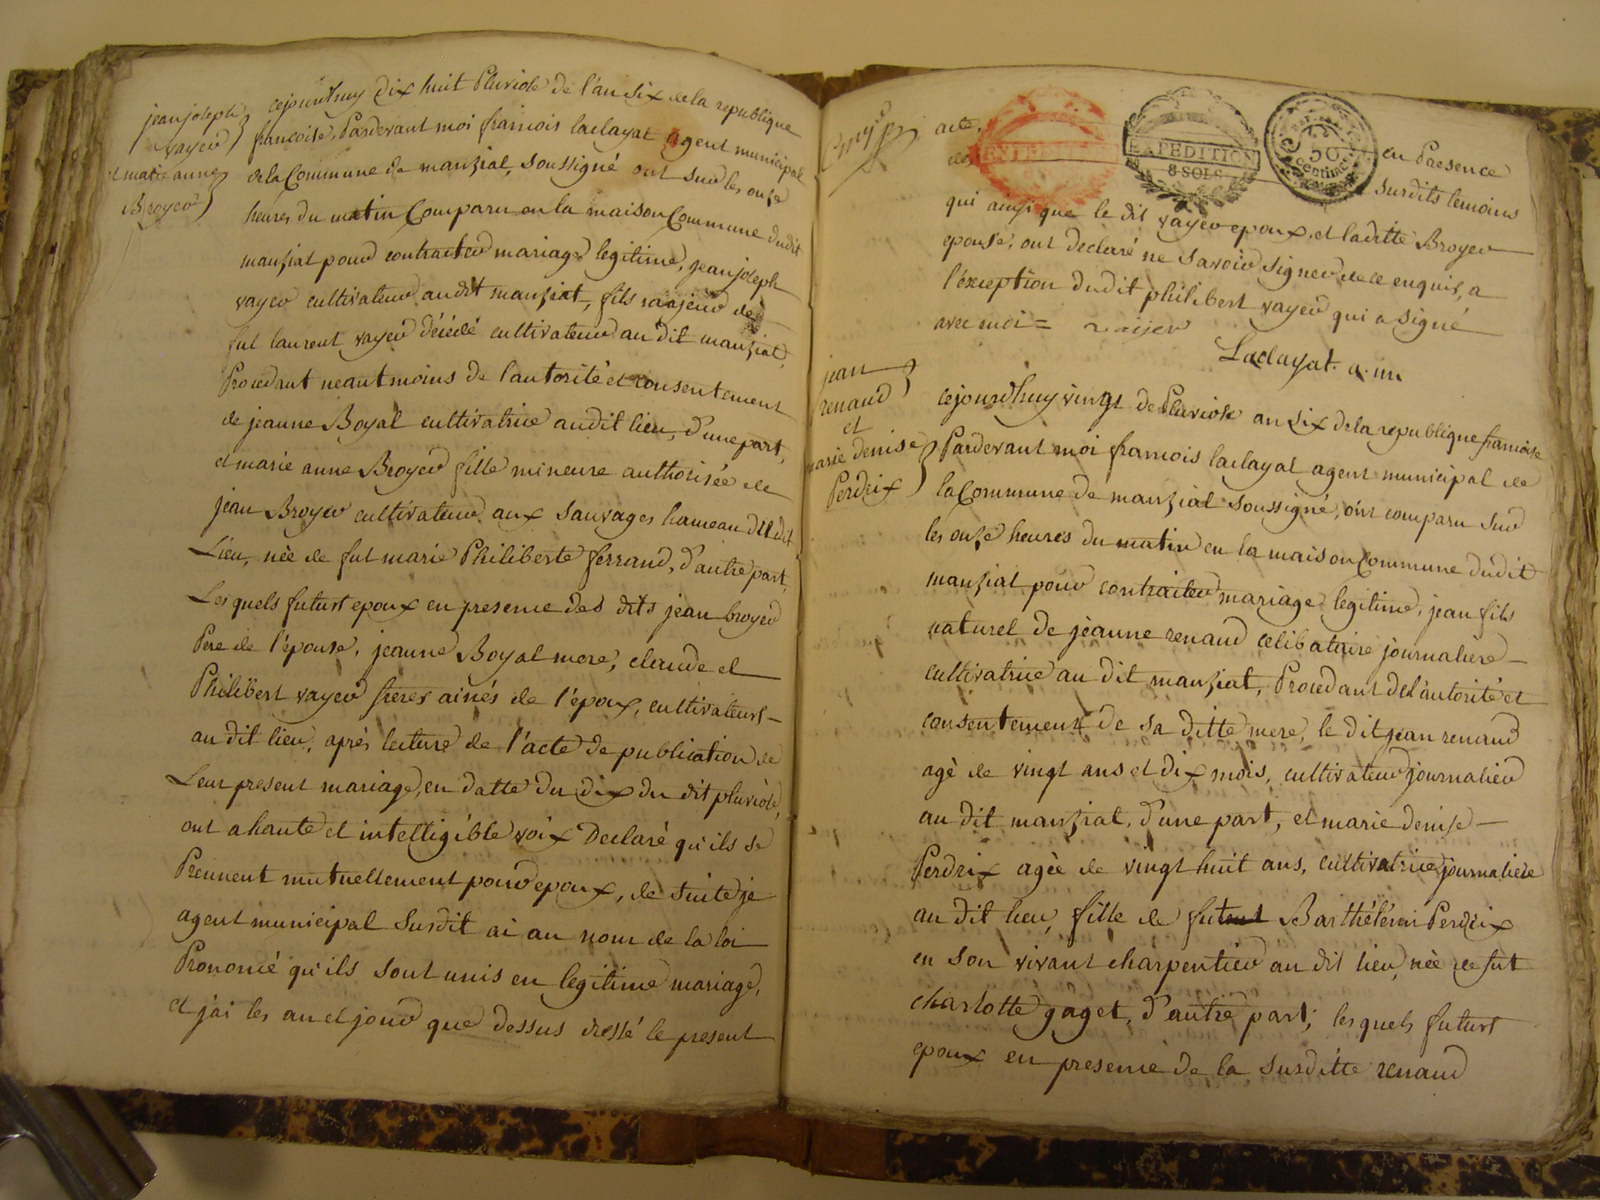 jean joseph
vayer
et marie anne
Broyer
cejourd'huy dix huit Pluviose de l'an six de la republique
francoise, Pardevant moi francois laclayat agent municipal
de la Commune de manziat, soussigné ont sur les onze
heures du matin Comparu en la maison Commune dudit
manziat pour contracter mariage legitime, jean joseph
vayer cultivateur audit manziat, fils majeur de
fut laurent vayer décédé cultivateur au dit manziat,
Procedant neantmoins de l'autorité et consentement
de jeanne Boyat cultivatrice audit lieu, d'une part,
et marie anne Broyer fille mineure authorisée de
jean Broyer cultivateur aux sauvages hameau du dit
Lieu, née de fut marie Philiberte ferrand, d'autre part,
Lesquels futurs epoux en presence des dits jean broyer
Pere de l'épouse, jeanne Boyat mere, claude et
Philibert vayer freres ainés de l'époux, cultivateurs
au dit lieu, après lecture de l'acte de publication de
Leur present mariage, en datte du dix du dit pluviose,
ont a haute et intelligible voix Declaré qu'ils se
Prennent mutuellement pour epoux, de suite je
agent municipal Susdit ai au nom de la loi
Prononcé qu'ils sont unis en legitime mariage,
et j'ai les an et jour que dessus dressé le present
acte,
EXPEDITION
8 SOLS
50
Centimes
en Presence
des
susdits temoins
qui ainsi que le dit vayer epoux, et laditte Broyer
epouse, ont declaré ne savoir signer de ce enquis, a
l'exception dudit philibert vayer qui a signé
avec moi = vaijer
Laclayat. a. m
jean
renaud
et
marie denise
Perdrix
cejourd'huy vingt de Pluviose an six de la republique francoise
Pardevant moi francois laclayat agent municipal de
la Commune de manziat soussigné, ont comparu sur
les onze heures du matin en la maison Commune dudit
manziat pour contracter mariage legitime, jean fils
naturel de jeanne renaud celibataire journaliere
cultivatrice au dit manziat, Procedant de l'autorité et
consentement de sa ditte mere, le dit jean renaud
agé de vingt ans et dix mois, cultivateur journalier
au dit manziat, d'une part, et marie denise
Perdrix agée de vingt huit ans, cultivatrice journaliere
au dit lieu, fille de fut Barthélémi Perdrix
en son vivant charpentier au dit lieu, née de fut
charlotte gaget, d'autre part, lesquels futurs
epoux en presence de la susditte renaud